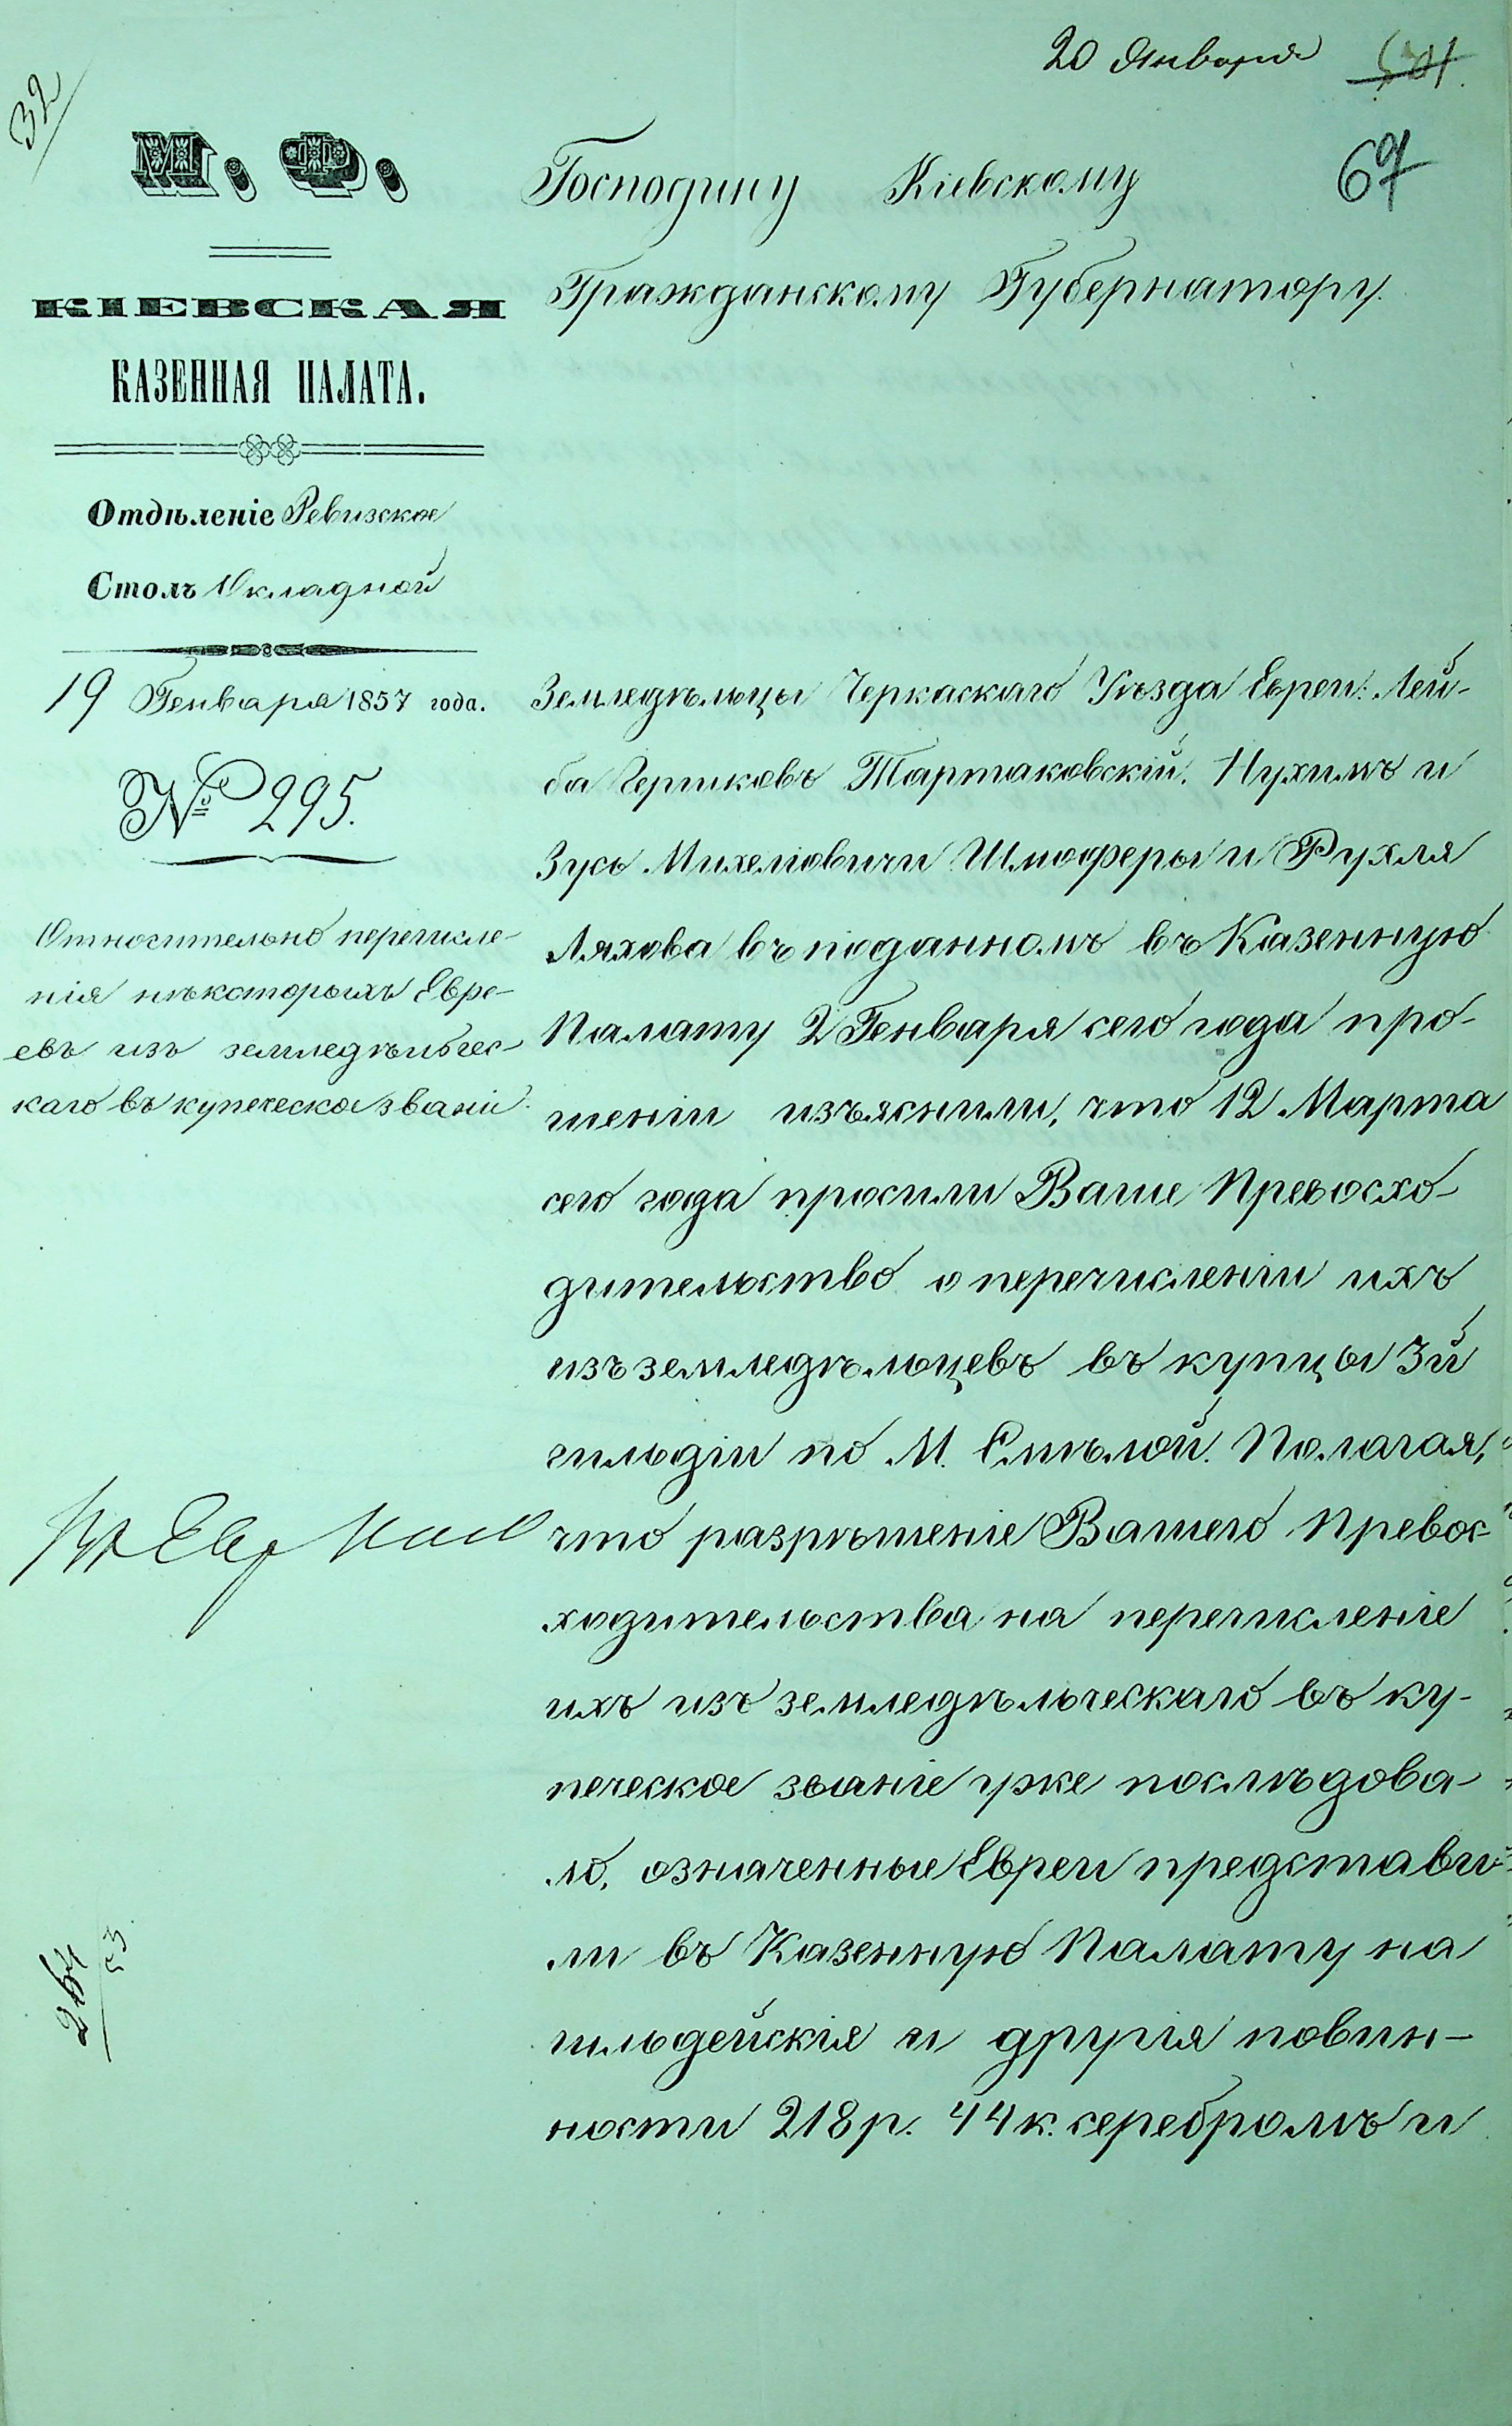 20 Января
32
67
М. Ф.
КІЕВСКАЯ
КАЗЕННАЯ ПАЛАТА.
Отдѣленіе Ревизское
Столъ Окладной
19 Генваря 1857 года.
№ 295.
Относительно перечисле-
нія нѣкоторыхъ Евре-
евъ изъ земледѣльчес-
каго въ купеческое званіе.
Господину Кіевскому
Гражданскому Губернатору.
Земледѣльцы Черкаскаго Уѣзда Евреи: Лей-
ба Гершковъ Тартаковскій, Нухимъ и
Зусь Михелювичи Шмоферы и Рухля
Ляхова въ поданномъ въ Казенную
Палату 2 Генваря сего года про-
шеніи изъяснили, что 12 Марта
сего года просили Ваше Превосхо-
дительство о перечисленіи ихъ
изъ земледѣльцевъ въ купцы 3й
гильдіи по М. Смѣлой. Полагая,
что разрѣшеніе Вашего Превос-
ходительства на перечисленіе
ихъ изъ земледѣльческаго въ ку-
печеское званіе уже послѣдова-
ло, означенные Евреи представи-
ли въ Казенную Палату на
гильдейскія и другія повин-
ности 218 р. 44 к. серебромъ и